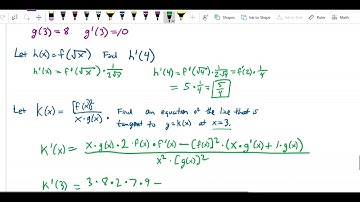 Ink to Shape
Ink to Text
g(3) = 8 g'(3) = 10
Let h(x) = f(√x) Find h'(4)
h'(x) = f'(√x) · 1/(2√x) h'(4) = f'(√4) · 1/(2√4) = f'(2) · 1/4
= 5 · 1/4 = 5/4
Let K(x) = [f(x)]²/(x · g(x)). Find an equation of the line that is
tangent to y = k(x) at x = 3.
K'(x) = (x · g(x) · 2 · f(x) · f'(x) − [f(x)]² · (x · g'(x) + 1 · g(x)))/(x² · [g(x)]²)
K'(3) = 3 · 8 · 2 · 7 · 9 −